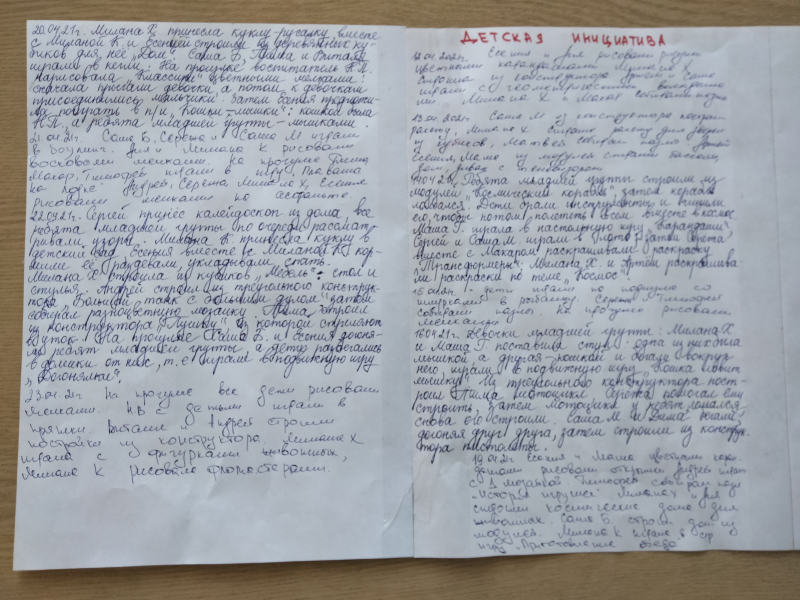 20.04.21г. Милана Х. принесла куклу-русалку, вместе
с Миланой К. и Есенией строили из деревянных ку-
биков для неё „Дом". Саша Б, Тима и Виталик
играли в кегли. На прогулке воспитатель Н.П.
нарисовала „Классики" цветными мелками:
сначала прыгали девочки, а потом к девочкам
присоединились мальчики. Затем Есения предложи-
ла поиграть в п/и „Кошки-мышки": кошкой была
Н.П, а ребята младшей группы-мышками.
21.04.21г Саша Б, Сережа и Саша М играли
в боулинг. Аня и Милана К рисовали
восковыми мелками. На прогулке Тима,
Макар, Тимофей играли в игру
Андрей, Сережа, Милана Х, Есения
рисовали мелками по асфальту.
22.04.21г. Сергей принёс калейдоскоп из дома, все
ребята младшей группы по очереди рассмат-
ривали узоры. Милана К. принесла куклу в
детский сад. Есения вместе с Миланой К. кор-
мили её, одевали, укладывали спать.
Милана Х строила из кубиков „Мебель": стол и
стулья. Андрей строил из треугольного конструк-
тора „Большой танк с большим дулом", затем
собирал разноцветную мозаику. Тима строил
из конструктора „Пушку" из которой стреляют
в уток. На прогулке Саша Б. и Есения догоня-
ли ребят младшей группы, а дети разбегались
в домики от них, т.е. играли в подвижную игру
„Догонялки".
23.04.21г На прогулке все дети рисовали
мелками. Н.В с детьми играли в
прятки. Виталик и Андрей строили
постройки из конструктора. Милана Х
играла с фигурками животных,
Милана К рисовала фломастерами.
ДЕТСКАЯ ИНИЦИАТИВА
12.04.2021г. Есения и Аня рисовали рисунки
цветными карандашами. Милана Х
строила из конструктора. Андрей и Саша
играли с геометрическим
Милана Х и Макар собирали пазлы
13.04.2021г. Саша М из конструктора построил
ракету, Милана Х строила ракету для зверей
из кубиков, Матвей собирал пазлы. Андрей
Есения, Маша из модулей строили бассейн,
14.04.21г. Ребята младшей группы строили из
модулей „Космический корабль", затем корабль
сломался. Дети брали инструменты и чинили
его, чтобы потом полететь всем вместе в космос.
Маша Г. играла в настольную игру „Карандаши",
Сергей и Саша М. играли в лото. Затем Сережа
вместе с Макаром раскрашивали раскраску
„Трансформеры"; Милана Х. и Артём раскрашива-
ли раскраски по теме „Космос".
15.04.21г. дети играли на
игрушками в рыбалку. Сережа, Тимофей
собирали пазлы. На прогулке рисовали
мелками.
16.04.21г Девочки младшей группы: Милана Х
и Маша Г. поставили стул: одна из них была
мышкой, а другая-кошкой и бегали вокруг
него, играли в подвижную игру „Кошка ловит
мышку". Из треугольного конструктора пост-
роил Тима мотоцикл. Сережа помогал ему
строить. Затем мотоцикл у ребят сломался
снова его строили. Саша М. и Миша бегали,
догоняя друг друга, затем строили из конструк-
тора пистолеты.
19.04.21г Есения и Маша цветными каран-
дашами рисовали открытки. Андрей играл
с мозаикой. Тимофей собирал пазл
„История игрушек". Милана Х и Аня
строили космические дома для
животных. Саша Б. строил дом из
модулей. Милана К играла в с/р
игру „Приготовление обеда"